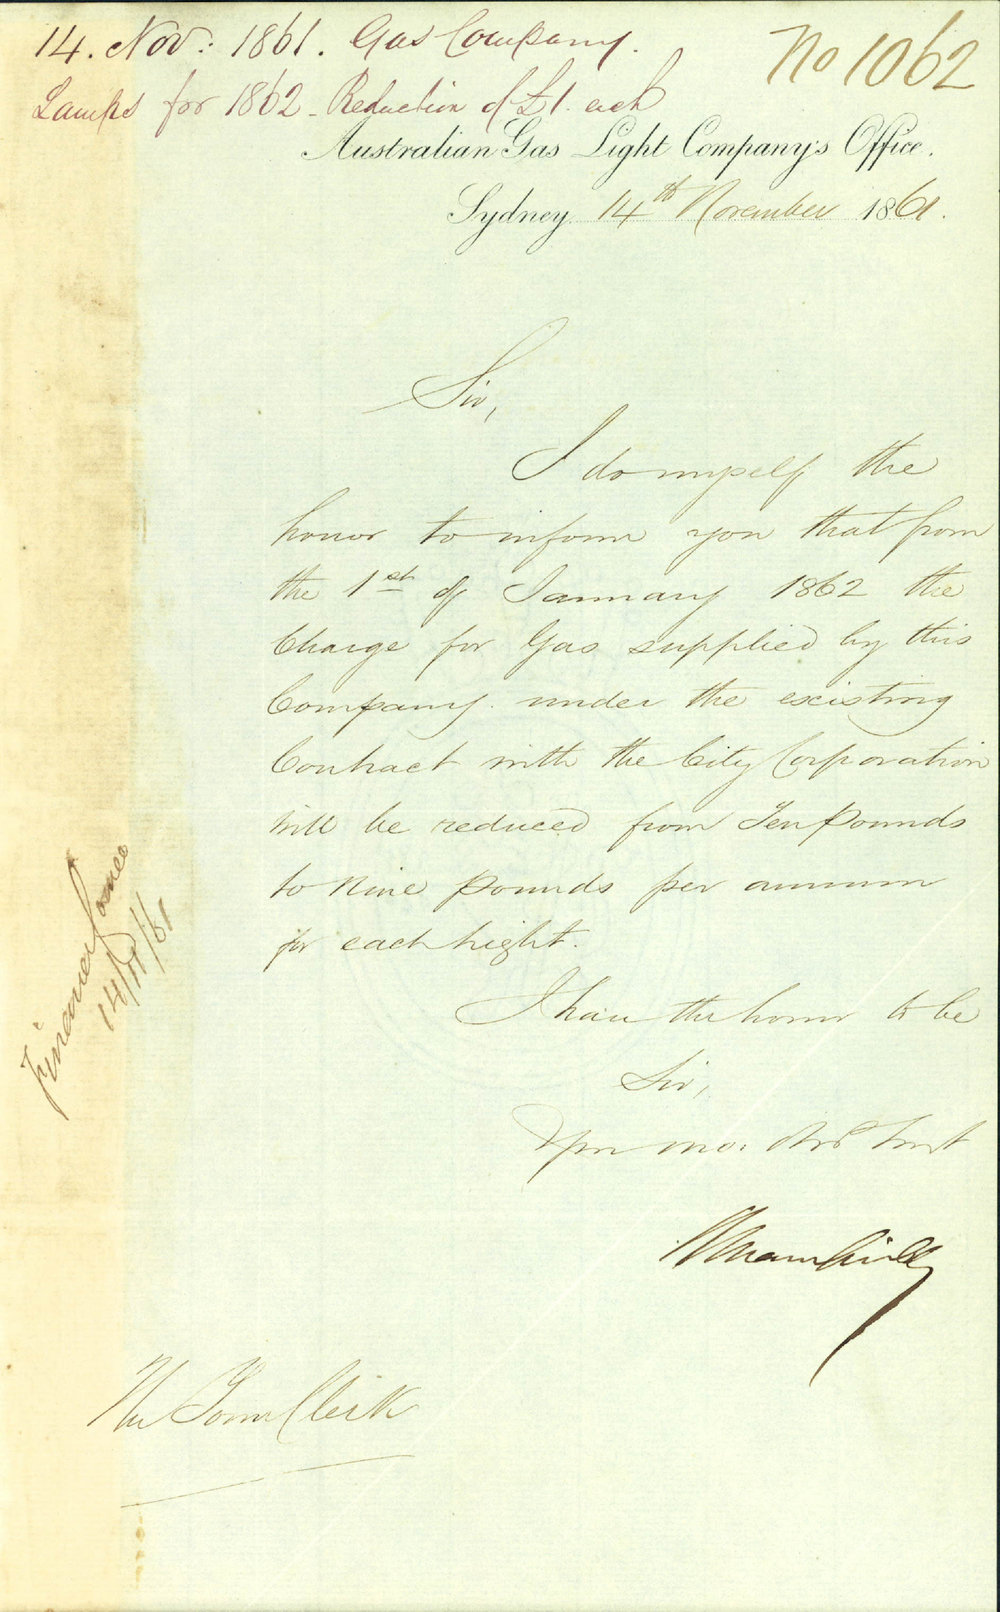 14. Nov: 1861. Gas Company.
No 1062
Lamps for 1862 - Reduction of £1. each
Australian Gas Light Company's Office.
Sydney 14th November 1861.
Sir,
I do myself the
honor to inform you that from
the 1st of January 1862 the
Charge for Gas supplied by this
Company under the existing
Contract with the City Corporation
will be reduced from Ten Pounds
to Nine Pounds per annum
for each light.
I have the honor to be
Sir,
Your mo: Obd Servt
The Town Clerk
Finance
14/11/61